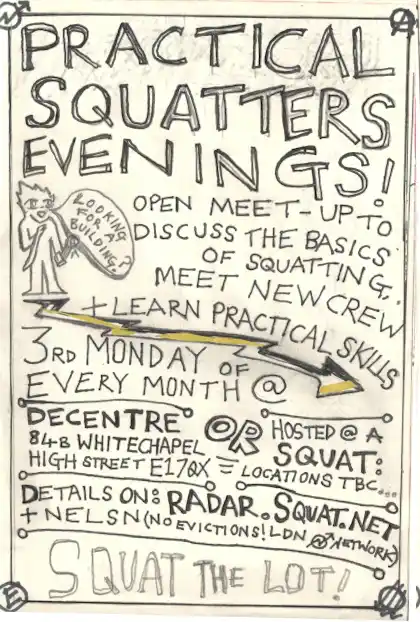 PRACTICAL
SQUATTERS
EVENINGS!
LOOKING
FOR A
BUILDING?
OPEN MEET-UP TO
DISCUSS THE BASICS
OF SQUATTING,
MEET NEW CREW
+ LEARN PRACTICAL SKILLS
3RD MONDAY OF
EVERY MONTH @
DECENTRE
84B WHITECHAPEL
HIGH STREET E17QX
OR
HOSTED @ A
SQUAT:
LOCATIONS TBC...
DETAILS ON: RADAR.SQUAT.NET
+ NELSN (NO EVICTIONS! LDN NETWORK)
SQUAT THE LOT!
E